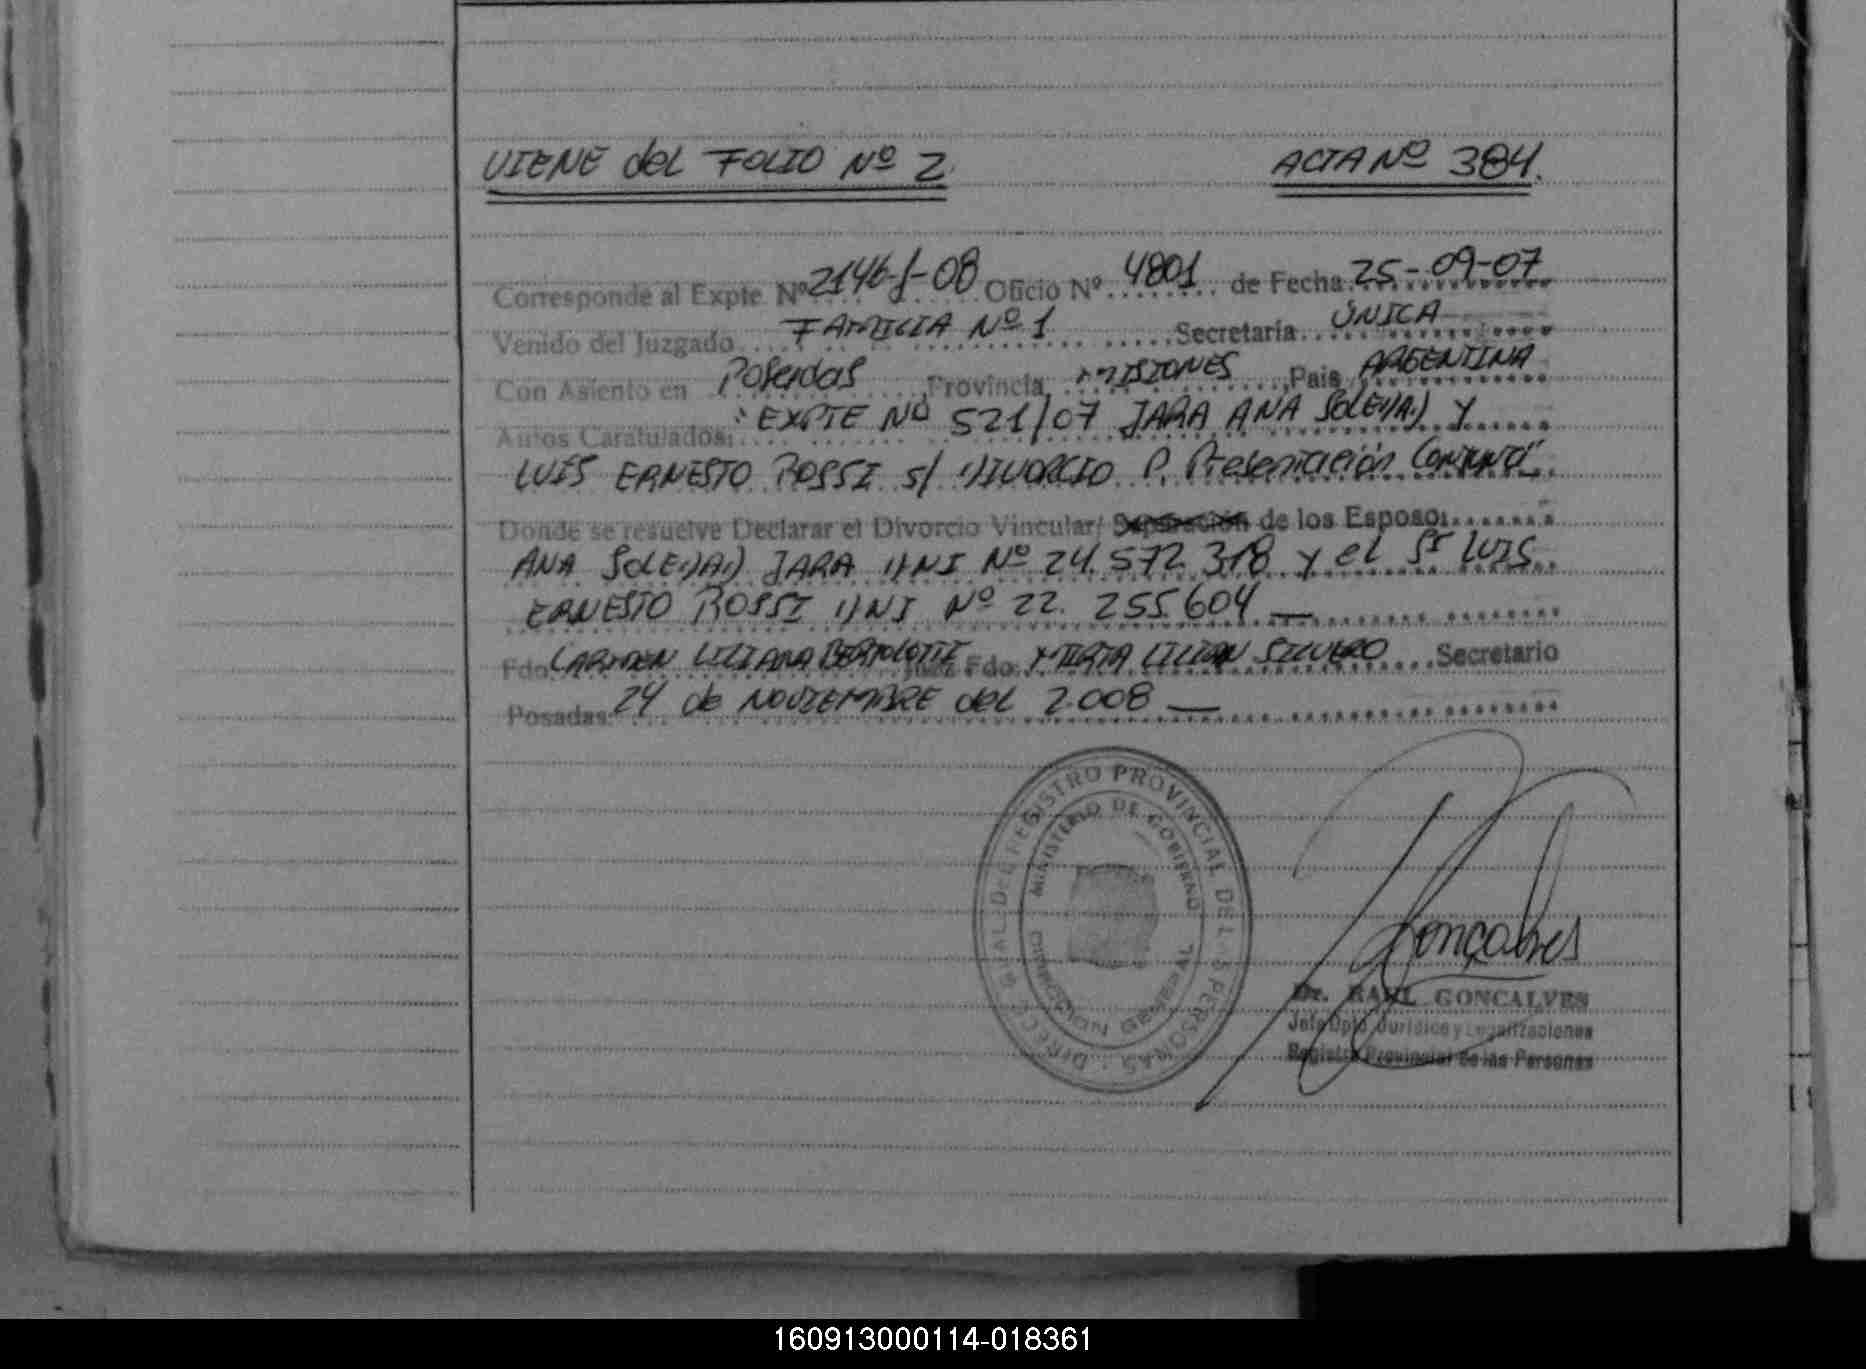 VIENE del FOLIO Nº 2.
ACTA Nº 384.
Corresponde al Expte Nº 2146-J-08 Oficio Nº 4801 de Fecha 25-09-07
Venido del Juzgado FAMILIA Nº 1 Secretaría ÚNICA
Con Asiento en Posadas, Provincia MISIONES, País ARGENTINA
Autos Caratulados: EXPTE Nº 521/07 JARA ANA SOLEDAD Y
LUIS ERNESTO ROSSI s/ DIVORCIO P. Presentación Conjunta"
Donde se resuelve Declarar el Divorcio Vincular/ Separación de los Esposo:
ANA SOLEDAD JARA DNI Nº 24.572.318 y el Sr LUIS
ERNESTO ROSSI DNI Nº 22.255.604 —
Fdo CARMEN LILIANA BERTOLOTTI Juez Fdo: MIRTA LILIAN SILVERO Secretario
Posadas: 24 de NOVIEMBRE del 2.008 —
REGISTRO PROVINCIAL DE LAS PERSONAS
MINISTERIO DE GOBIERNO
DIRECCION GENERAL
Gonçalves
Dr. RAUL GONCALVES
Jefe Dpto. Jurídico y Legalizaciones
Registro Provincial de las Personas
160913000114-018361